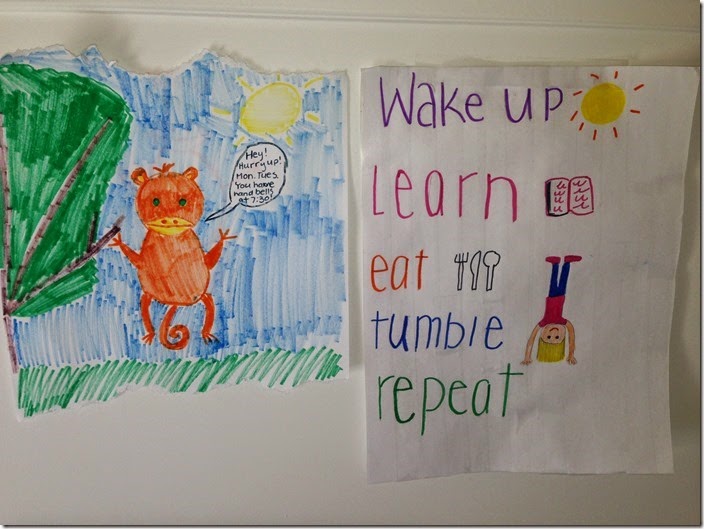 Hey!
Hurry up!
Mon. Tues.
You have
hand bells
at 7:30!
Wake up
Learn
eat
tumble
repeat